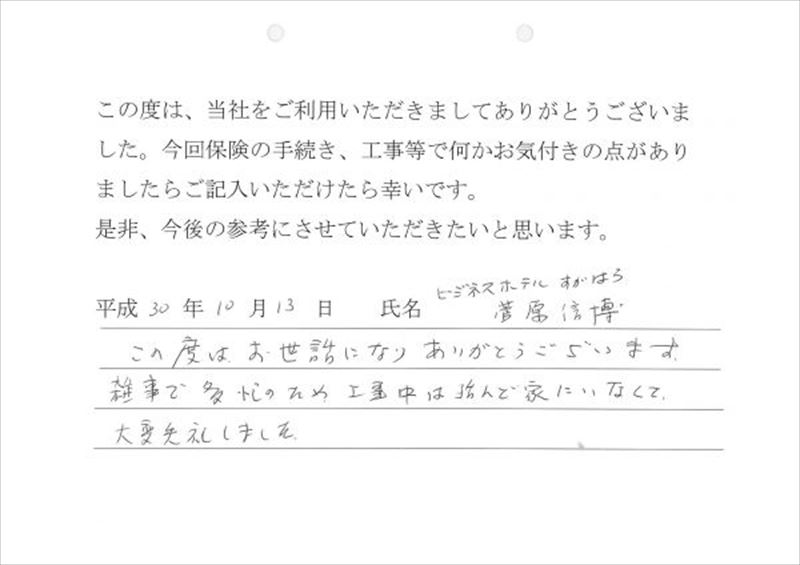 この度は、当社をご利用いただきましてありがとうございま
した。今回保険の手続き、工事等で何かお気付きの点があり
ましたらご記入いただけたら幸いです。
是非、今後の参考にさせていただきたいと思います。
ビジネスホテル すがはら
平成 30 年 10 月 13 日 氏名 菅原信博
この度は、お世話になり ありがとうございます。
雑事で多忙のため 工事中は殆んど家にいなくて、
大変失礼しました。